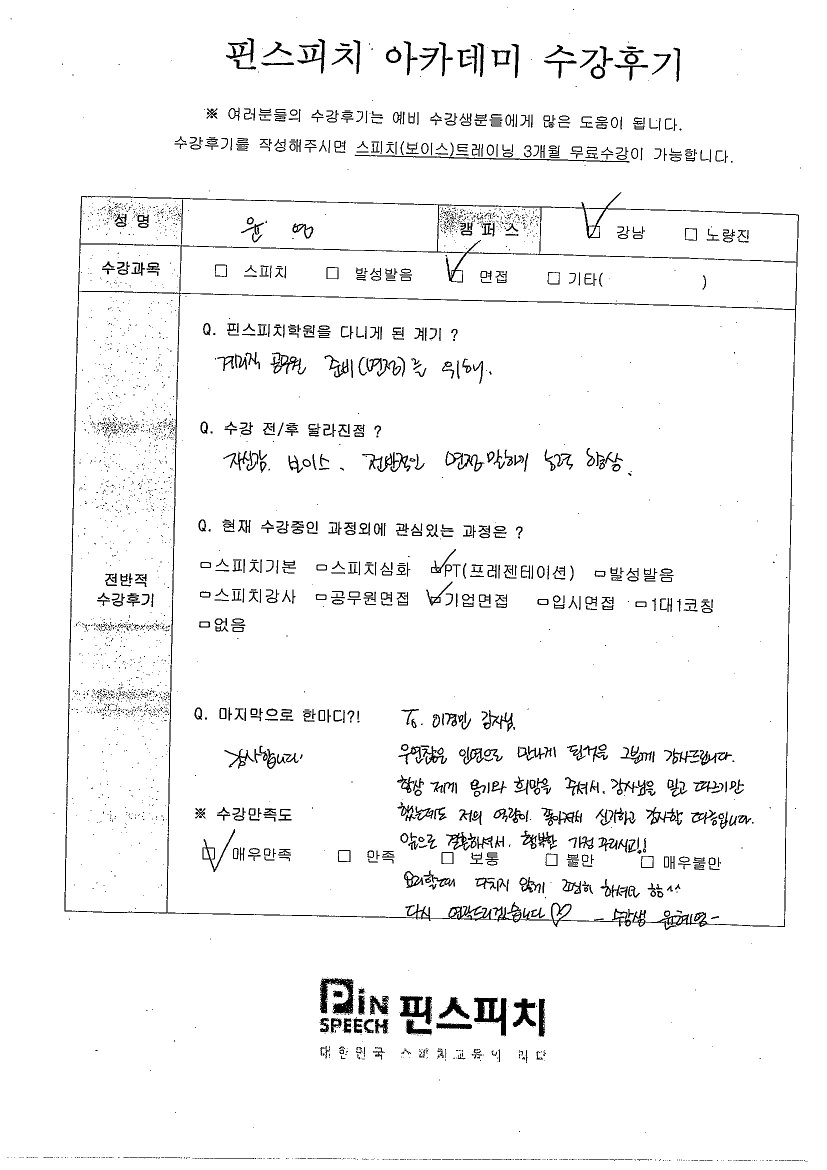 핀스피치 아카데미 수강후기
※ 여러분들의 수강후기는 예비 수강생분들에게 많은 도움이 됩니다.
수강후기를 작성해주시면 스피치(보이스)트레이닝 3개월 무료수강이 가능합니다.
성 명 윤 영 캠 퍼 스 ☑ 강남 □ 노량진
수강과목 □ 스피치 □ 발성발음 ☑ 면접 □ 기타( )
Q. 핀스피치학원을 다니게 된 계기 ?
계리직 공무원 준비(면접)를 위해.
Q. 수강 전/후 달라진점 ?
자신감, 보이스, 전반적인 면접 말하기 능력 향상.
Q. 현재 수강중인 과정외에 관심있는 과정은 ?
□스피치기본 □스피치심화 ☑PT(프레젠테이션) □발성발음
전반적 수강후기
□스피치강사 □공무원면접 ☑기업면접 □입시면접 □1대1코칭
□없음
Q. 마지막으로 한마디?! To. 이경민 강사님.
감사합니다
우연찮은 인연으로 만나게 된것을 그분께 감사드립니다.
항상 제게 용기와 희망을 주셔서, 강사님을 믿고 따르기만
※ 수강만족도
했는데도 저의 역량이 좋아져서 신기하고 감사할 따름입니다.
앞으로 결혼하셔서, 행복한 가정 꾸리시고!!
☑ 매우만족 □ 만족 □ 보통 □ 불만 □ 매우불만
요리할때 다치지 않게 하세요 ^^
다시 연락드리겠습니다♡ - 수강생 윤혜영 -
PiN SPEECH 핀스피치
대한민국 스피치교육의 리더